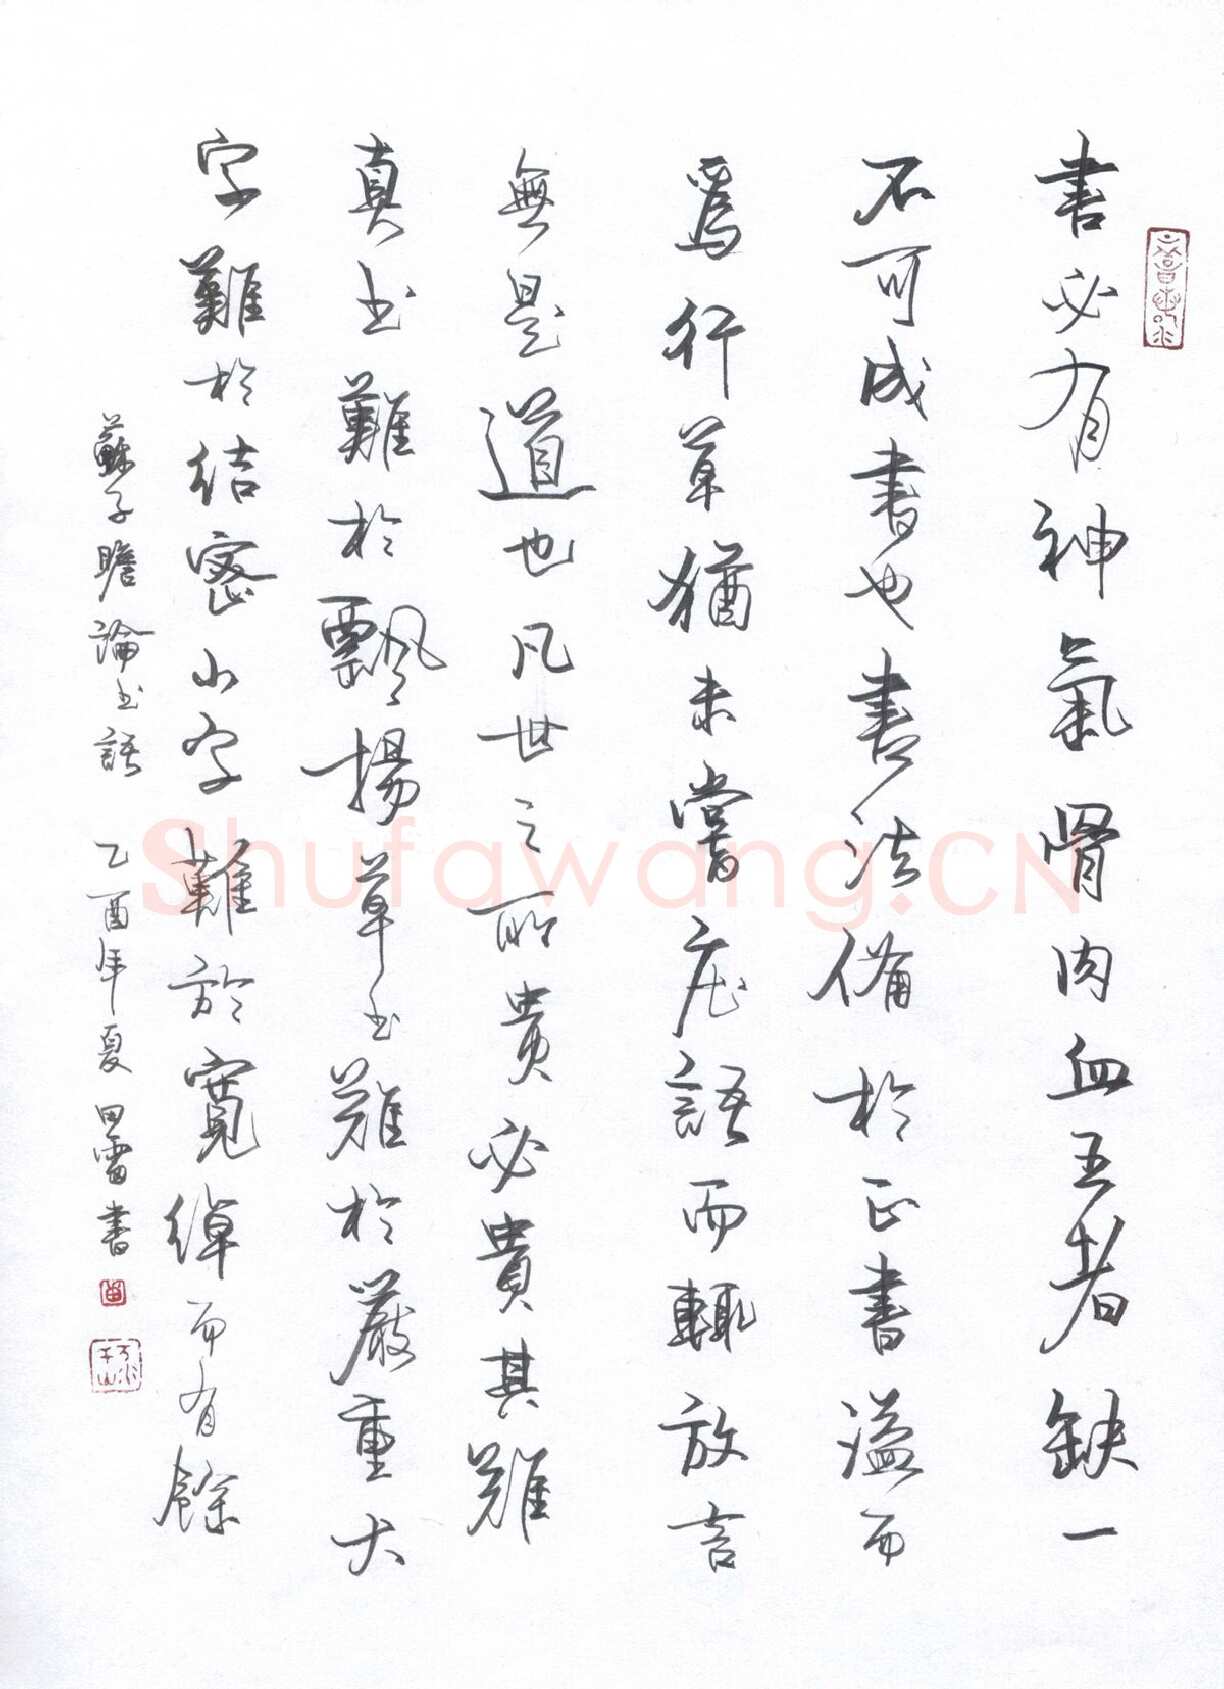 書必有神氣骨肉血五者缺一
不可成書也書法備於正書溢而
為行草猶未嘗莊語而輒放言
無是道也凡世之所貴必貴其難
真书難於飄揚草书難於嚴重大
字難於結密小字難於寬綽而有餘
蘇子瞻論书語 乙酉年夏 田雷書
Shufawang.CN